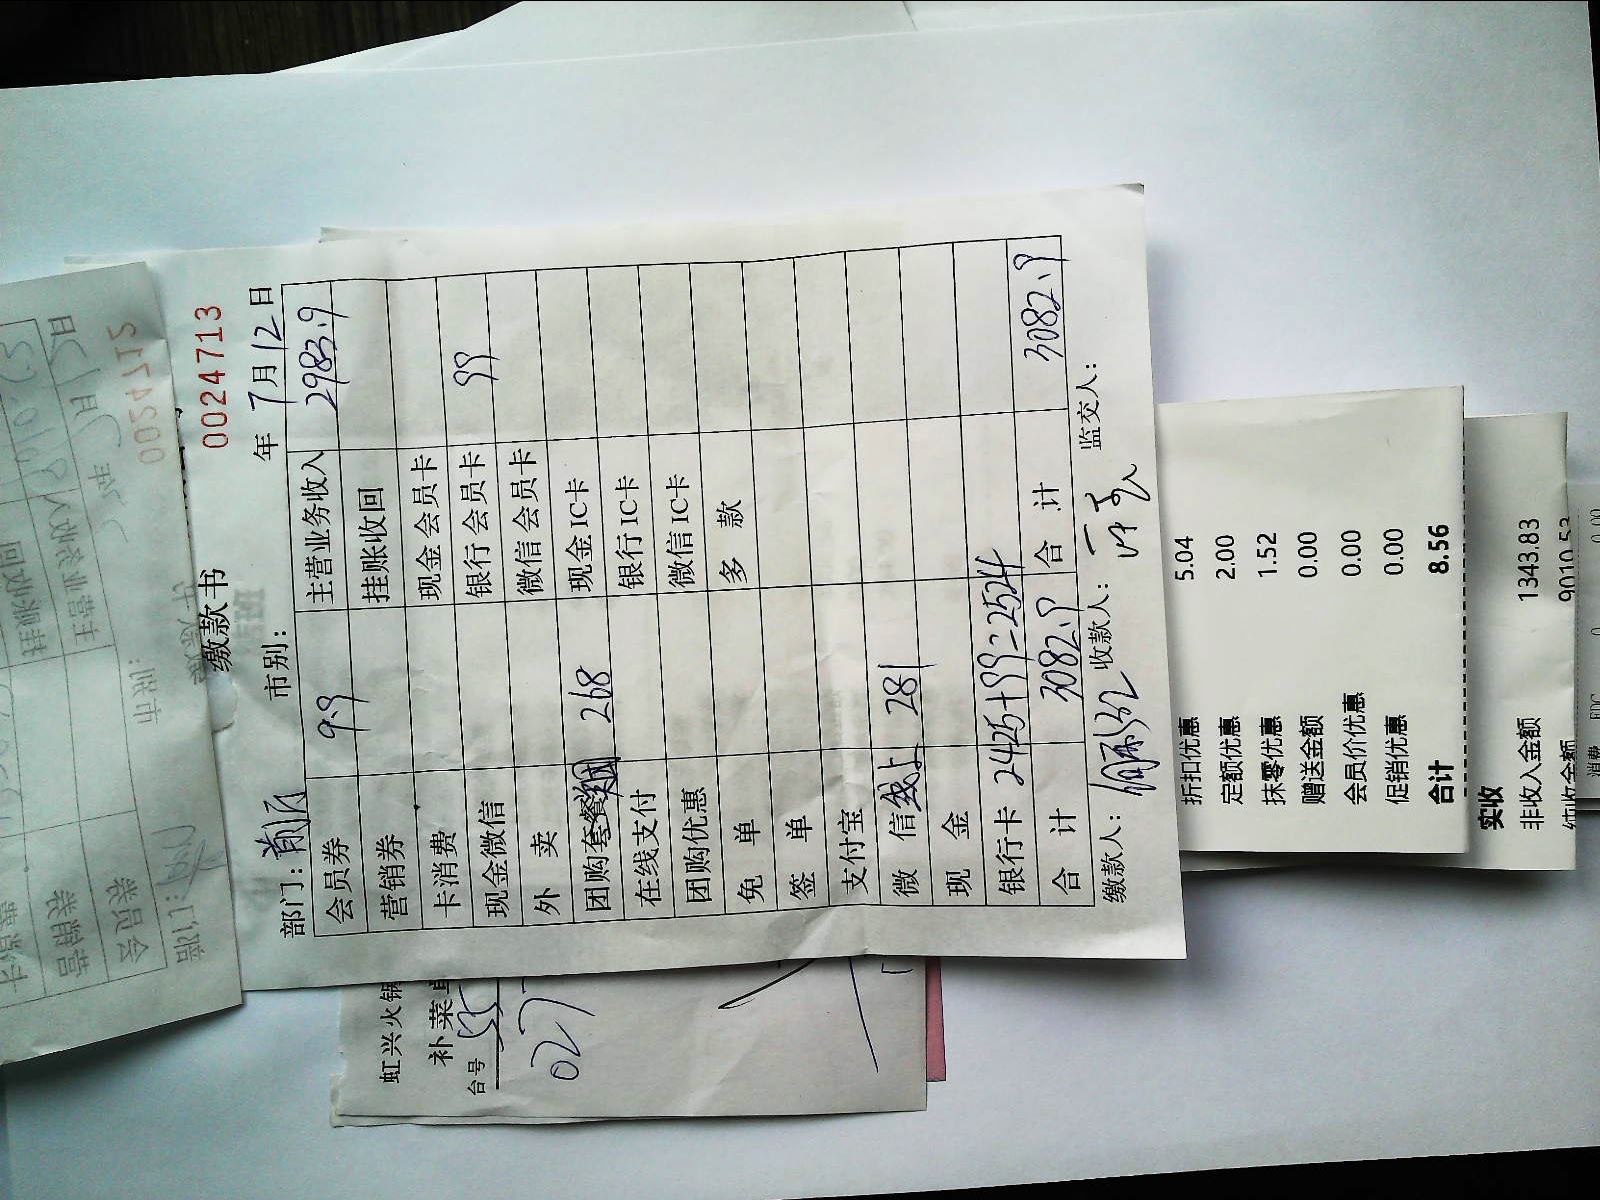 缴款书
0024713
部门：前厅 市别： 年 7月12日
会员券 99 主营业务收入 2983.9
营销券 挂账收回
卡消费 现金会员卡
现金微信 银行会员卡 99
外 卖 微信会员卡
团购套餐 268 现金IC卡
在线支付 银行IC卡
团购优惠 微信IC卡
免 单 多 款
签 单
支付宝
微 信线上 281
现 金
银行卡 2425+99=2524 合 计 3082.9
合 计 3082.9
缴款人： 收款人： 监交人：
折扣优惠 5.04
定额优惠 2.00
抹零优惠 1.52
赠送金额 0.00
会员价优惠 0.00
促销优惠 0.00
合计 8.56
实收
非收入金额 1343.83
纯收金额 9010.53
消费
虹兴火锅
补菜单
台号
027
0024712